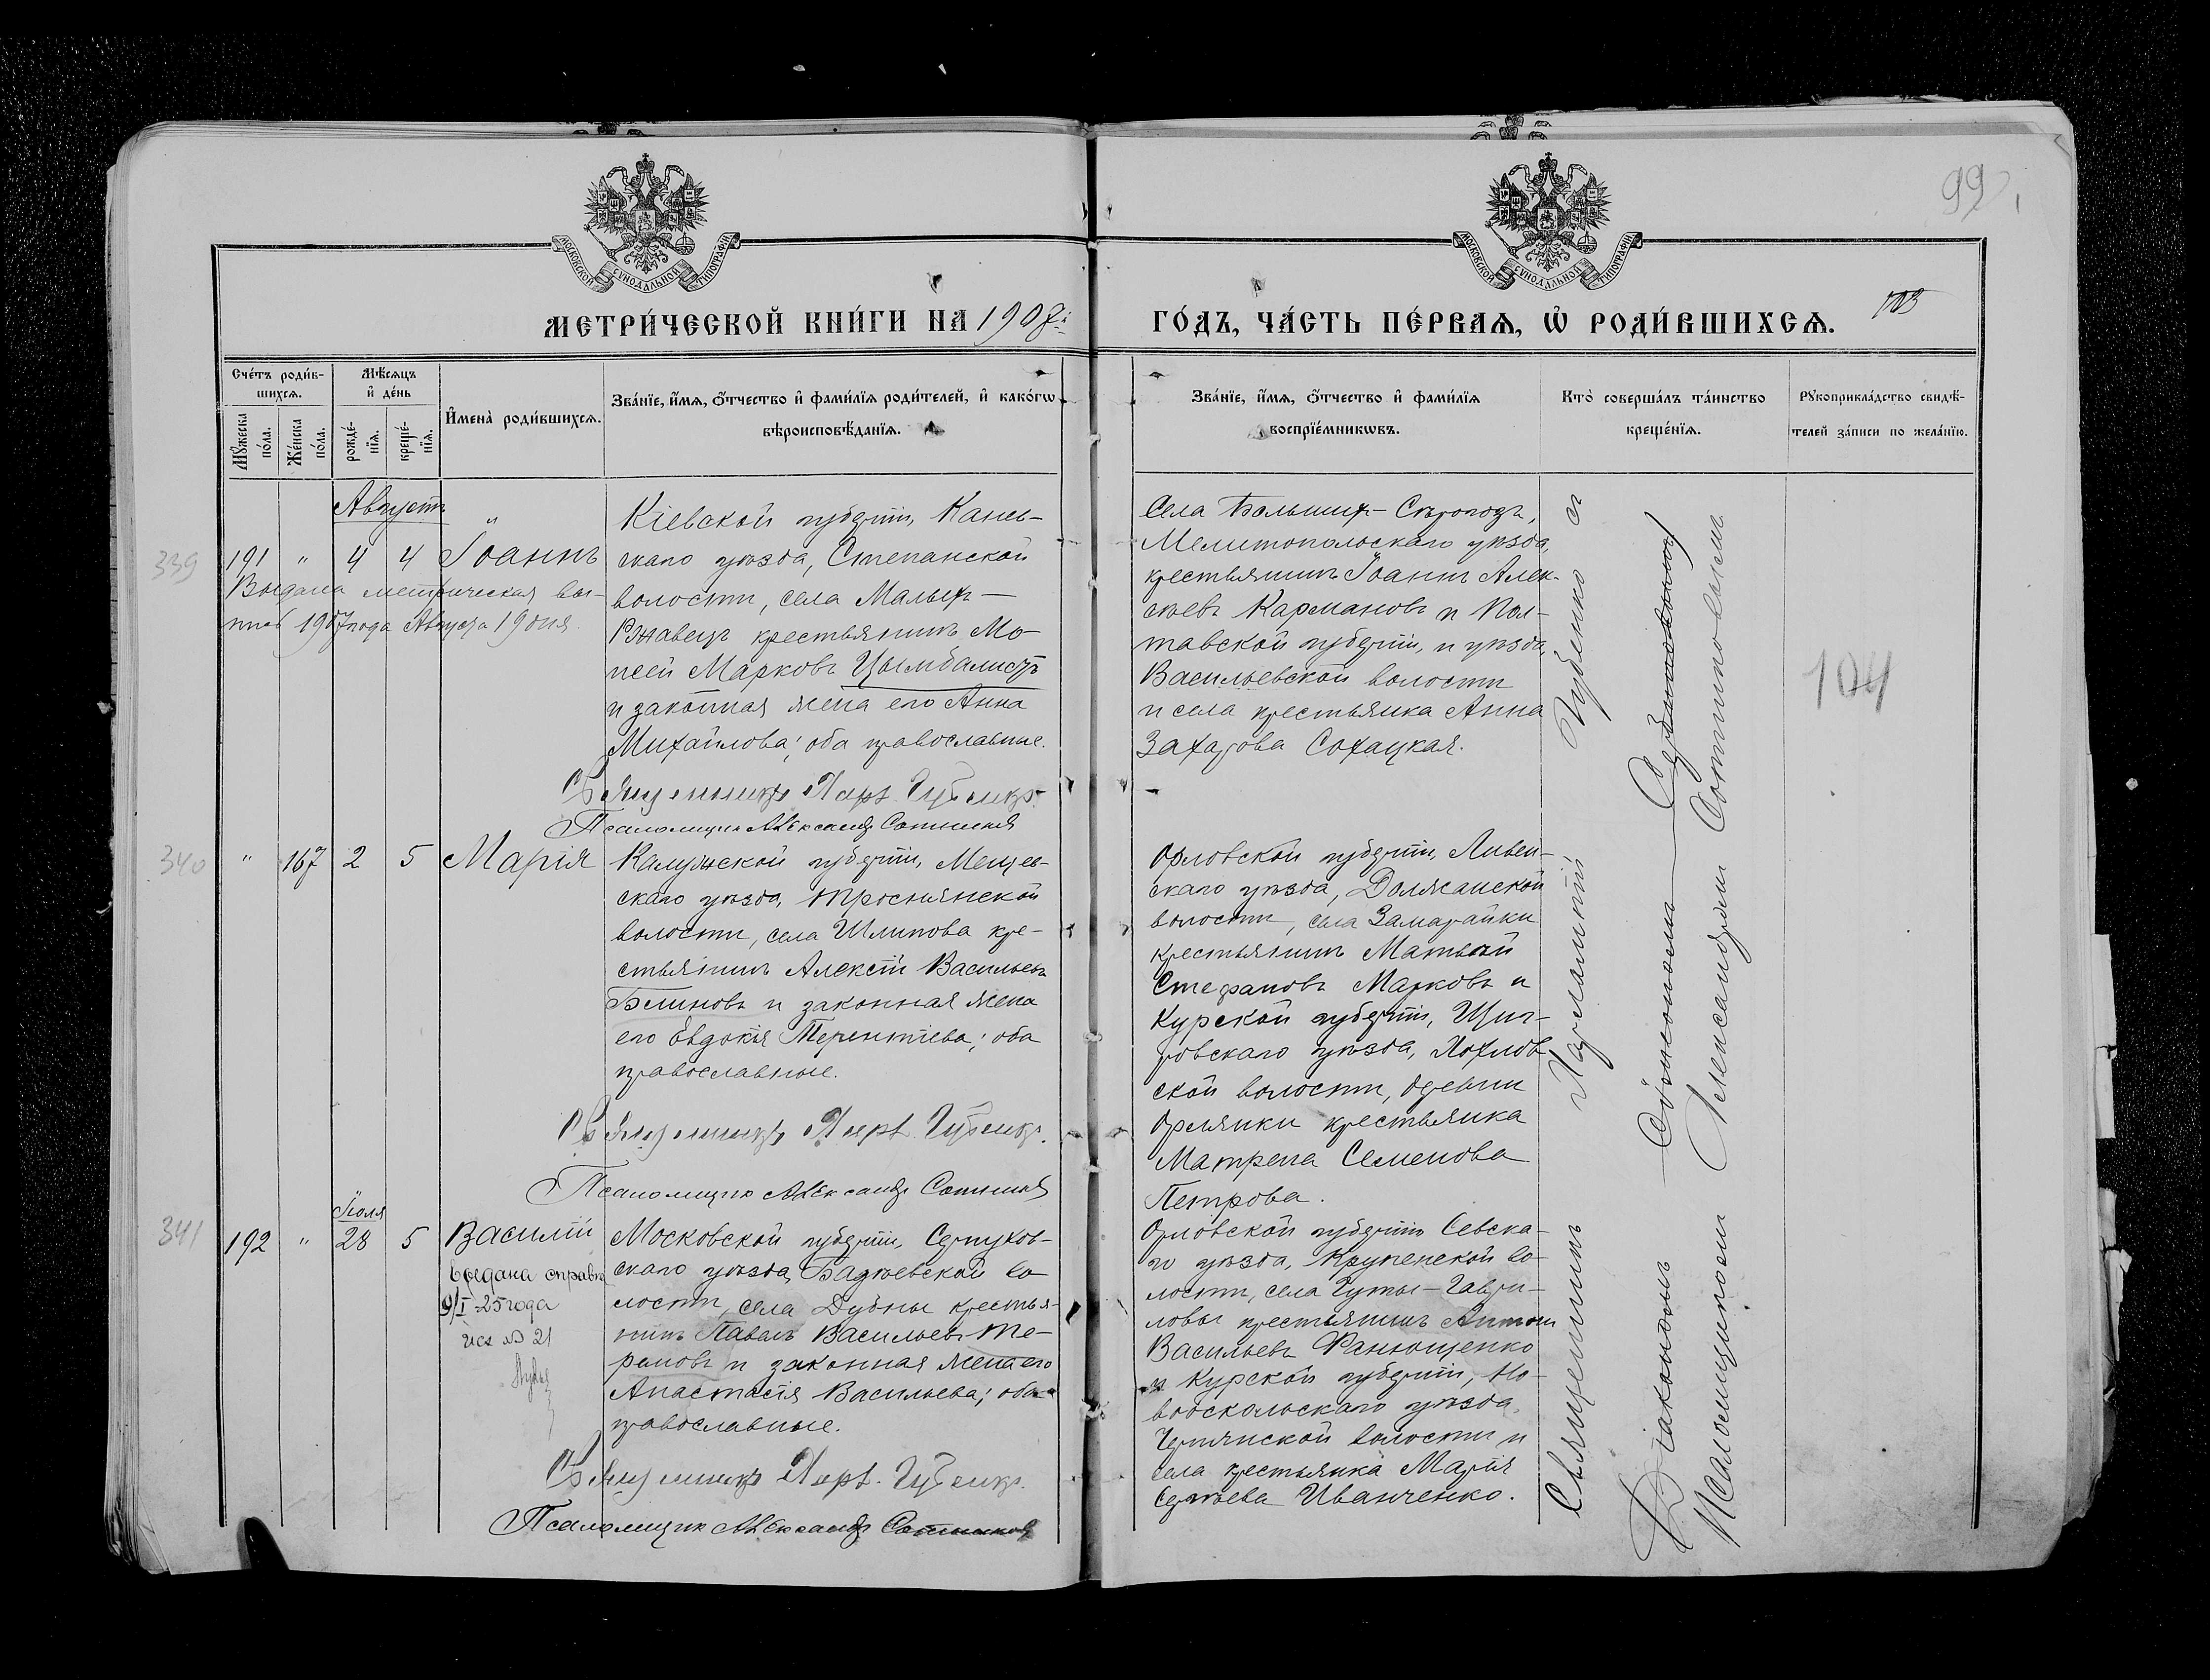 99
МОСКОВСКОЙ СѴНОДАЛЬНОЙ ТИПОГРАФІИ
МОСКОВСКОЙ СѴНОДАЛЬНОЙ ТИПОГРАФІИ
МЕТРИ́ЧЕСКОЙ КНИ́ГИ НА 1907
ГО́ДЪ, ЧА́СТЬ ПЕ́РВАѦ, Ѡ҆ РОДИ́ВШИХСѦ.
103
Сче́тъ роди́в-
шихсѧ.
Мꙋ́жеска по́ла.
Же́нска по́ла.
Мѣ́сѧцъ
и҆ де́нь
рожде́-
нїѧ.
креще́-
нїѧ.
И҆мена̀ роди́вшихсѧ.
Зва́нїе, и҆́мѧ, о҆́тчество и҆ фами́лїѧ роди́телей, и҆ како́гѡ
вѣроисповѣ́данїѧ.
Зва́нїе, и҆́мѧ, о҆́тчество и҆ фами́лїѧ
воспрїе́мникѡвъ.
Кто̀ соверша́лъ та́инство
креще́нїѧ.
Рꙋкоприкла́дство свидѣ́-
телей за́писи по жела́нїю.
Августъ
339
191 " 4 4 Іоаннъ
Выдана метрическая вы-
пись 1907 года Августа 19 дня.
Кіевской губерніи, Канев-
скаго уѣзда, Степанской
волости, села Малый-
Ржавецъ крестьянинъ Мо-
исей Марковъ Цымбалистъ
и законная жена его Анна
Михайлова; оба православные.
Священникъ Харл. Губенко.
Псаломщикъ Александръ Сотников
Села Большихъ-Сѣрогозъ,
Мелитопольскаго уѣзда,
крестьянинъ Іоаннъ Алек-
сѣевъ Кармановъ и Пол-
тавской губерніи, и уѣзда,
Васильевской волости
и села крестьянка Анна
Захарова Сохацкая.
340
" 167 2 5 Марія
Калужской губерніи, Мещев-
скаго уѣзда, Троснянской
волости, села Шлипова кре-
стьянинъ Алексій Васильевъ
Блиновъ и законная жена
его Евдокія Терентіева; оба
православные.
Священникъ Харл. Губенко.
Псаломщикъ Александръ Сотников
Орловской губерніи, Ливен-
скаго уѣзда, Должанской
волости, села Замарайки
крестьянинъ Матвѣй
Стефановъ Марковъ и
Курской губерніи, Щиг-
ровскаго уѣзда, Хохлов-
ской волости, деревни
Орлянки крестьянка
Матрена Семенова
Петрова.
341
Іюля
192 " 28 5 Василій
Выдана справка
9/I 25 года
Московской губерніи, Серпухов-
скаго уѣзда, Бадѣевской во-
лости, села Дубны крестья-
нинъ Павелъ Васильевъ Те-
реховъ и законная жена его
Анастасія Васильева; оба
православные.
Священникъ Харл. Губенко.
Псаломщикъ Александръ Сотников
Орловской губерніи Севска-
го уѣзда, Крупецкой во-
лости, села Гуты-Гаври-
ловы крестьянинъ Антонъ
Васильевъ Фанющенко
и Курской губерніи, Но-
вооскольскаго уѣзда,
Чернянской волости и
села крестьянка Марія
Сергѣева Иванченко.
Священникъ Харлампій Губенко съ
Діакономъ
Псаломщикомъ Александромъ Сотниковымъ
104